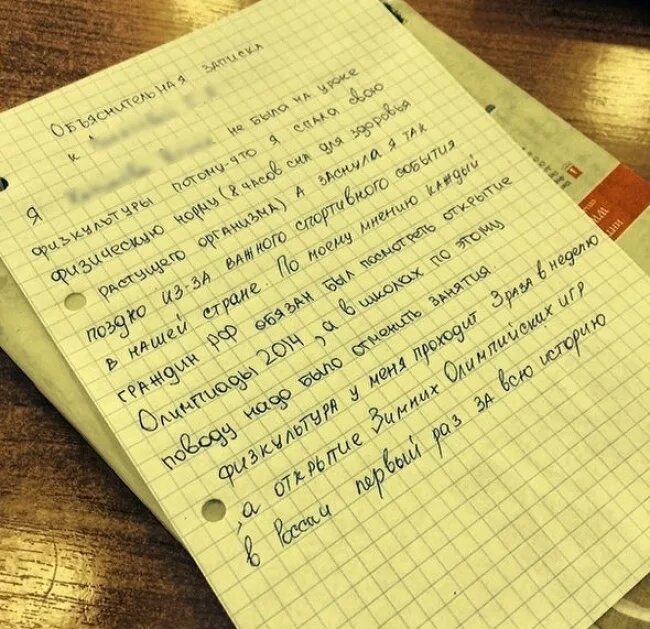 Объяснительная записка
к
Я не была на уроке
физкультуры потому-что я спала свою
физическую норму (8 часов сна для здоровья
растущего организма) а заснула я так
поздно из-за важного спортивного события
в нашей стране. По моему мнению каждый
граждин РФ обязан был посмотреть открытие
Олимпиады 2014, а в школах по этому
поводу надо было отменить занятия.
Физкультура у меня проходит 3 раза в неделю
, а открытие Зимних Олимпийских игр
в России первый раз за всю историю